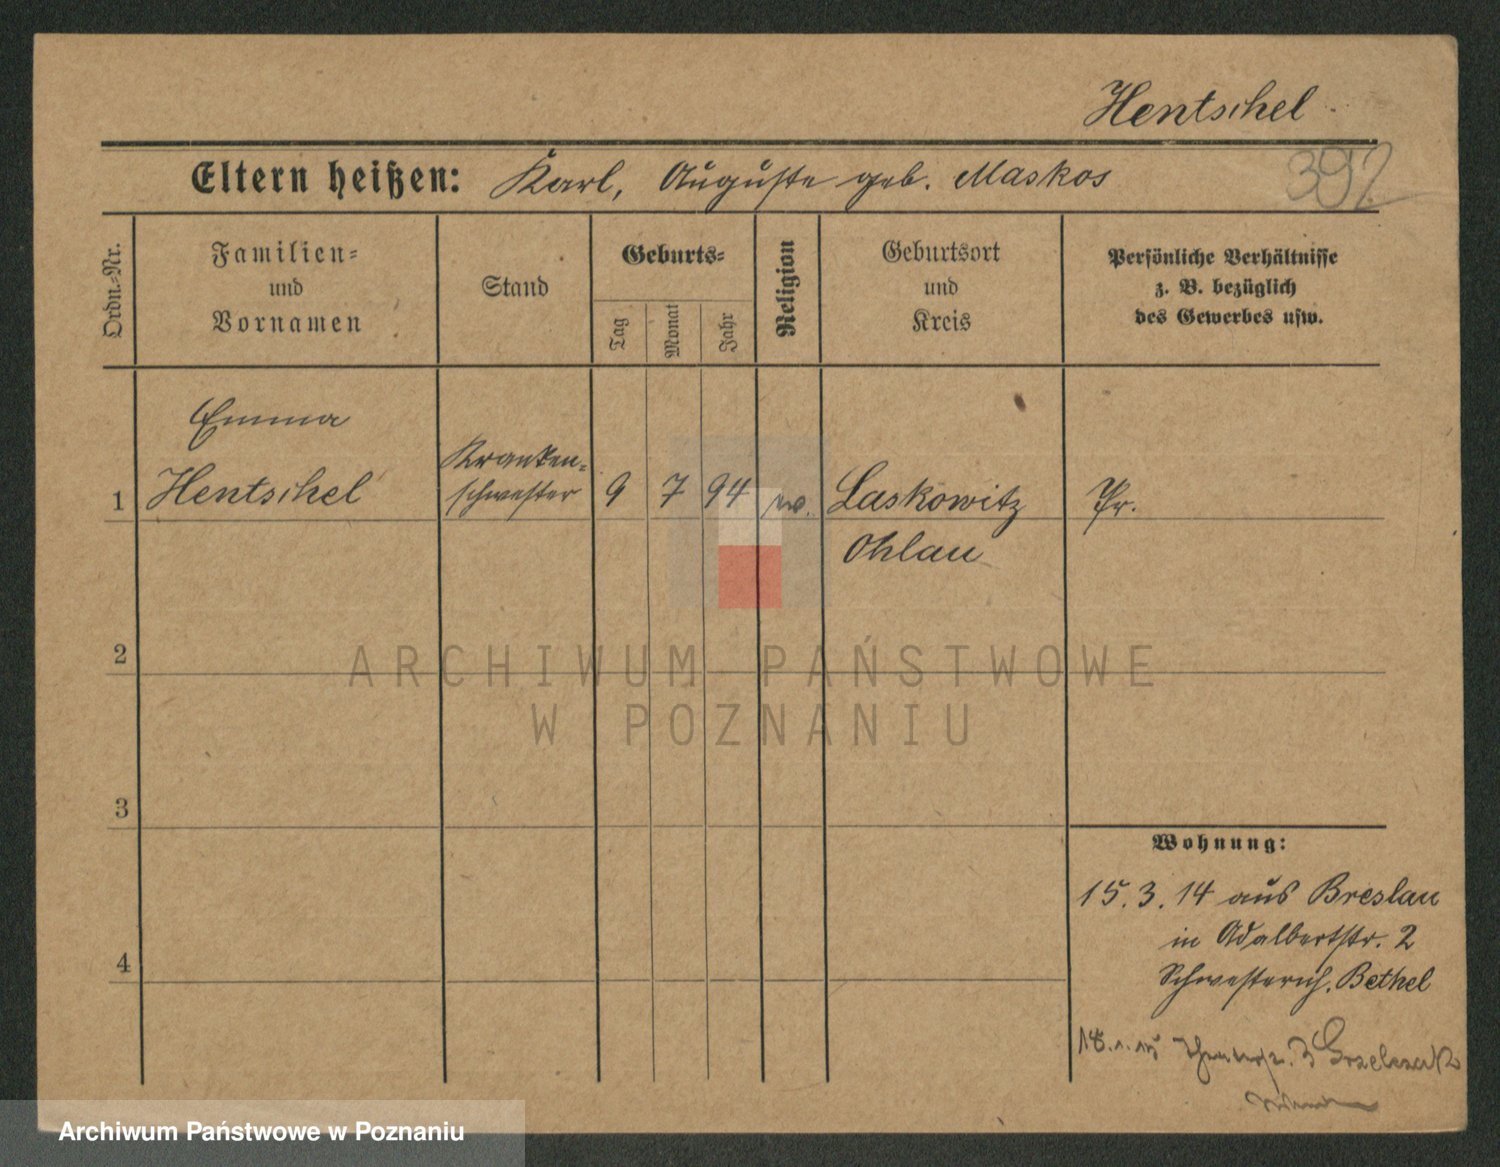 Hentschel
Eltern heißen: Karl, Auguste geb. Maskos
392
Ordn.-Nr.
Familien-
und
Vornamen
Stand
Geburts-
Tag
Monat
Jahr
Religion
Geburtsort
und
Kreis
Persönliche Verhältnisse
z. B. bezüglich
des Gewerbes usw.
Emma
Kranken-
1 Hentschel schwester 9 7 94 ev. Laskowitz Pr.
Ohlau
2
ARCHIWUM PAŃSTWOWE
W POZNANIU
3
Wohnung:
15.3.14 aus Breslau
in Adalbertstr. 2
4
Schwesternh. Bethel
18.1.15 3 Grzelczak
Archiwum Państwowe w Poznaniu